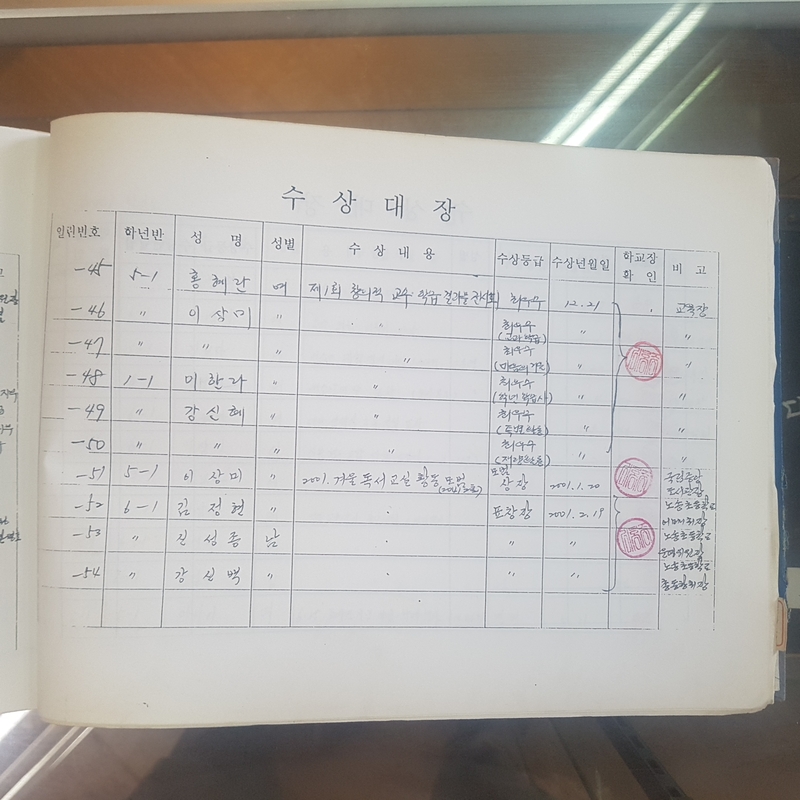 수 상 대 장
일련번호 학년반 성 명 성별 수 상 내 용 수상등급 수상년월일 학교장 확 인 비 고
-45 5-1 홍 혜 란 여 제1회 창의적 교수·학습 결과물 전시회 최우수 12.21 교육장
-46 〃 이 상 미 〃 〃 최우수 〃 〃
(교과학습)
-47 〃 〃 〃 최우수 〃 〃
-48 1-1 이 한 라 〃 〃 최우수 〃 〃
-49 〃 강 신 혜 〃 〃 최우수 〃
-50 〃 〃 〃 〃 최우수 〃 〃
-51 5-1 이 상 미 〃 2001. 겨울 독서 교실 활동 모범 모범상장 2001.1.20 국립중앙도서관장
-52 6-1 김 정 현 〃 표창장 2001.2.19 노송초등학교
-53 〃 진 성 종 남 〃 〃 노송초등학교 운영위원장
-54 〃 강 신 백 〃 〃 〃 노송초등학교